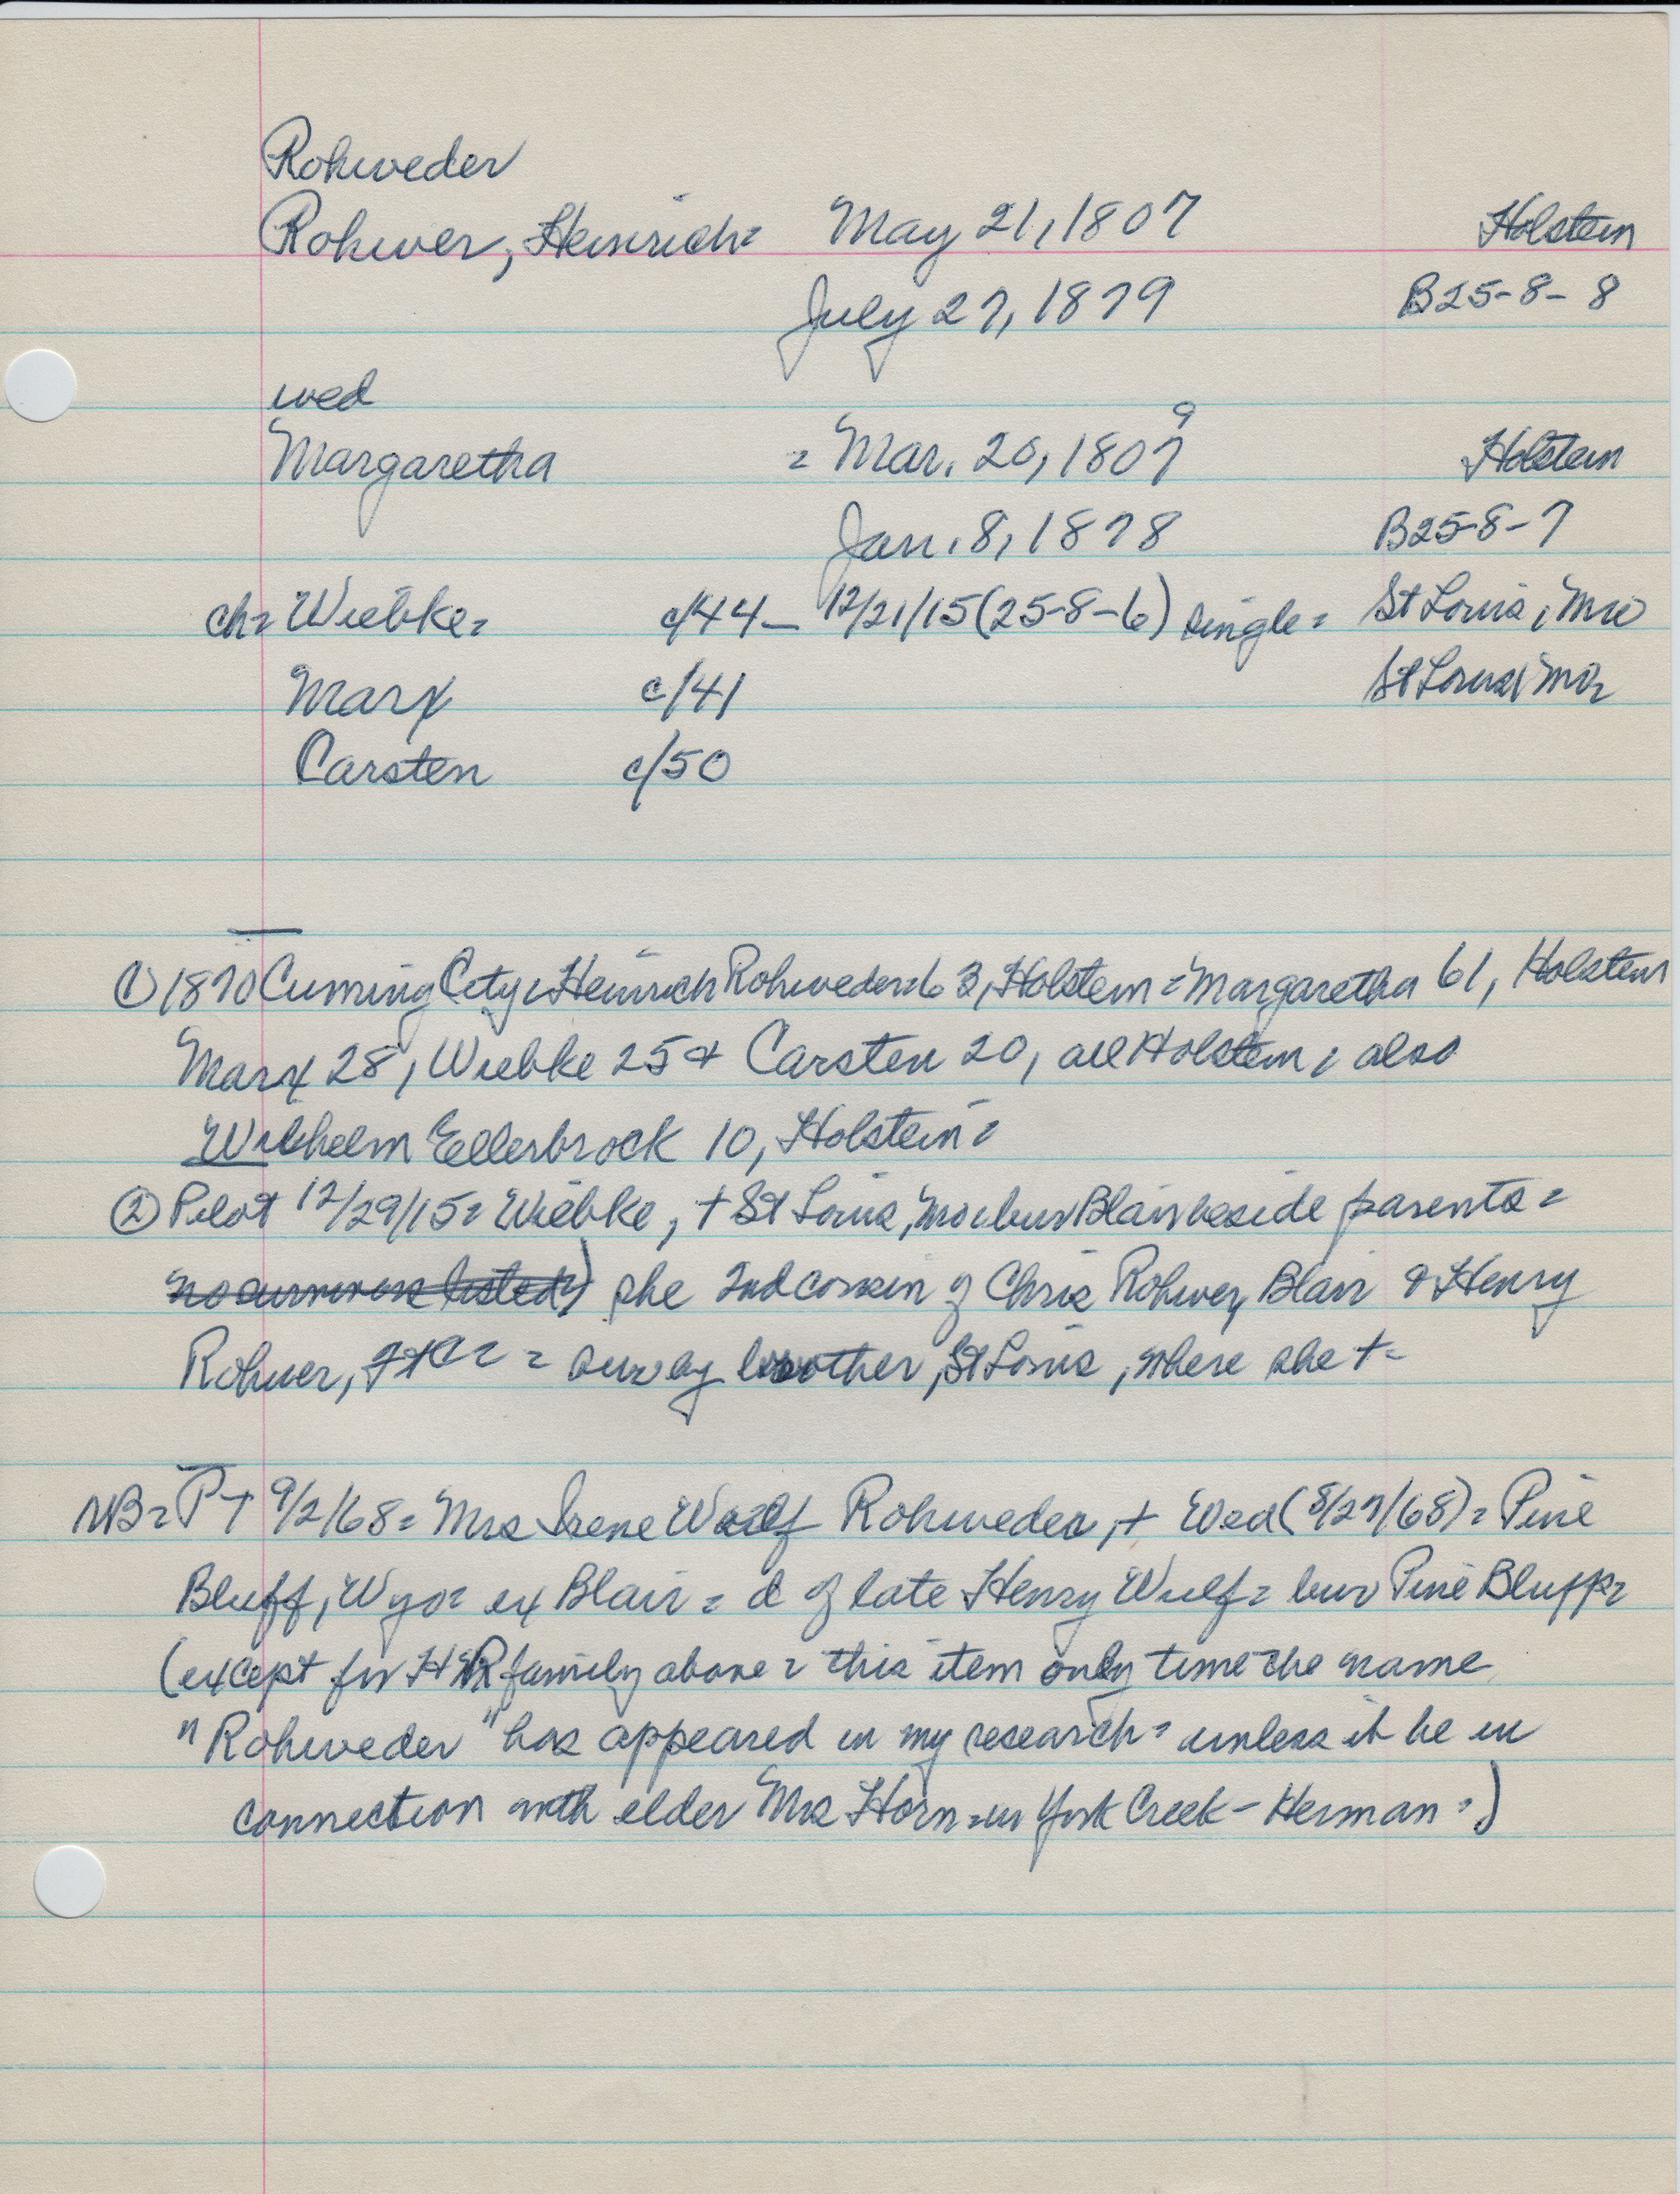 Rohweder
Rohwer, Heinrich= May 21, 1807 Holstein
July 27, 1879 B25-8-8
wed
Margaretha = Mar. 20, 1807 9 Holstein
Jan. 8, 1878 B25-8-7
ch= Wiebke= c/44 – 12/21/15 (25-8-6) single= St Louis, Mo
Marx c/41 St Louis, Mo=
Carsten c/50
① 1870 Cuming City= Heinrich Rohweder=63, Holstein= Margaretha 61, Holstein
Marx 28, Wiebke 25 + Carsten 20, all Holstein; also
Wilhelm Ellerbrock 10, Holstein=
② Pilot 12/29/15= Wiebke, + St Louis, Mo= bur Blair beside parents=
no survivors listed) she 2nd cousin of Chris Rohwer, Blair & Henry
Rohwer, Ft C= = surv by brother, St Louis, where she +=
NB= PT 9/2/68= Mrs Irene Wulf Rohweder, + Wed (8/27/68)= Pine
Bluff, Wyo= ex Blair= d of late Henry Wulf= bur Pine Bluff=
(except for HR family above= this item only time the name
"Rohweder" has appeared in my research= unless it be in
connection with elder Mrs Horn=in York Creek – Herman=)